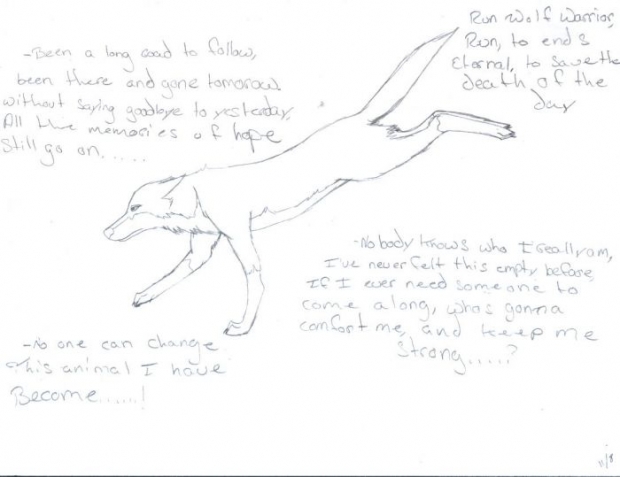 -Been a long road to follow,
been there and gone tomorrow
without saying goodbye to yesterday,
All the memories of hope
Still go on.....
Run Wolf Warrior,
Run, to ends
Eternal, to save the
death of the
day
-Nobody knows who I really am,
I've never felt this empty before,
If I ever need someone to
come along, whos gonna
comfort me, and keep me
Strong.....?
-No one can change
This animal I have
Become......!
11/8